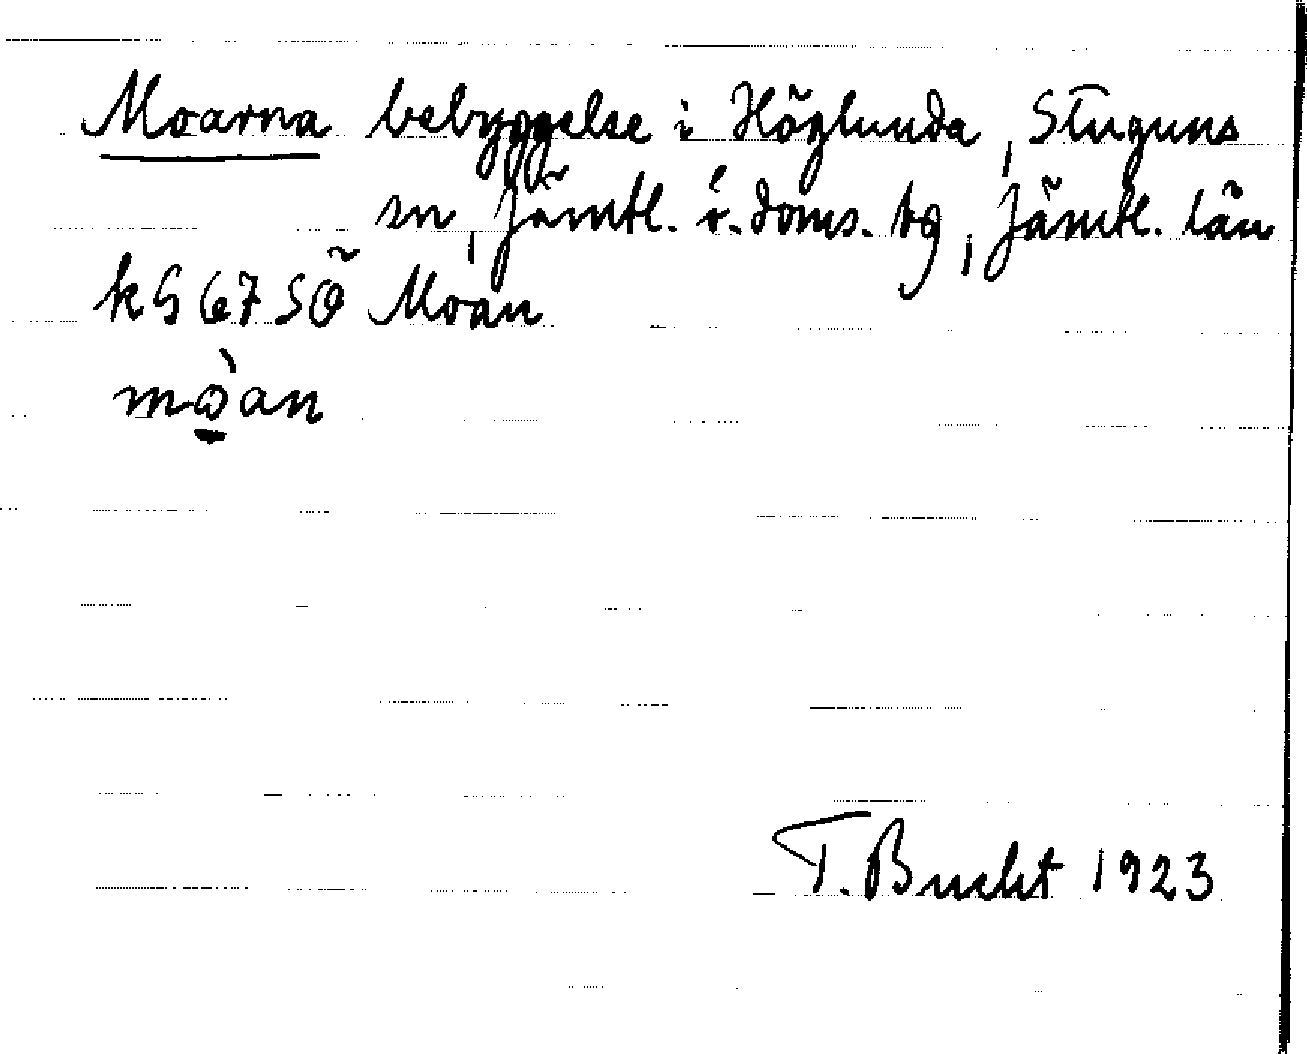 Moarna bebyggelse i Höglunda, Stuguns
sn, Jämtl. ö. doms. tg, Jämtl. län
k G 67 SÖ Moan
mò̱an
T. Bucht 1923